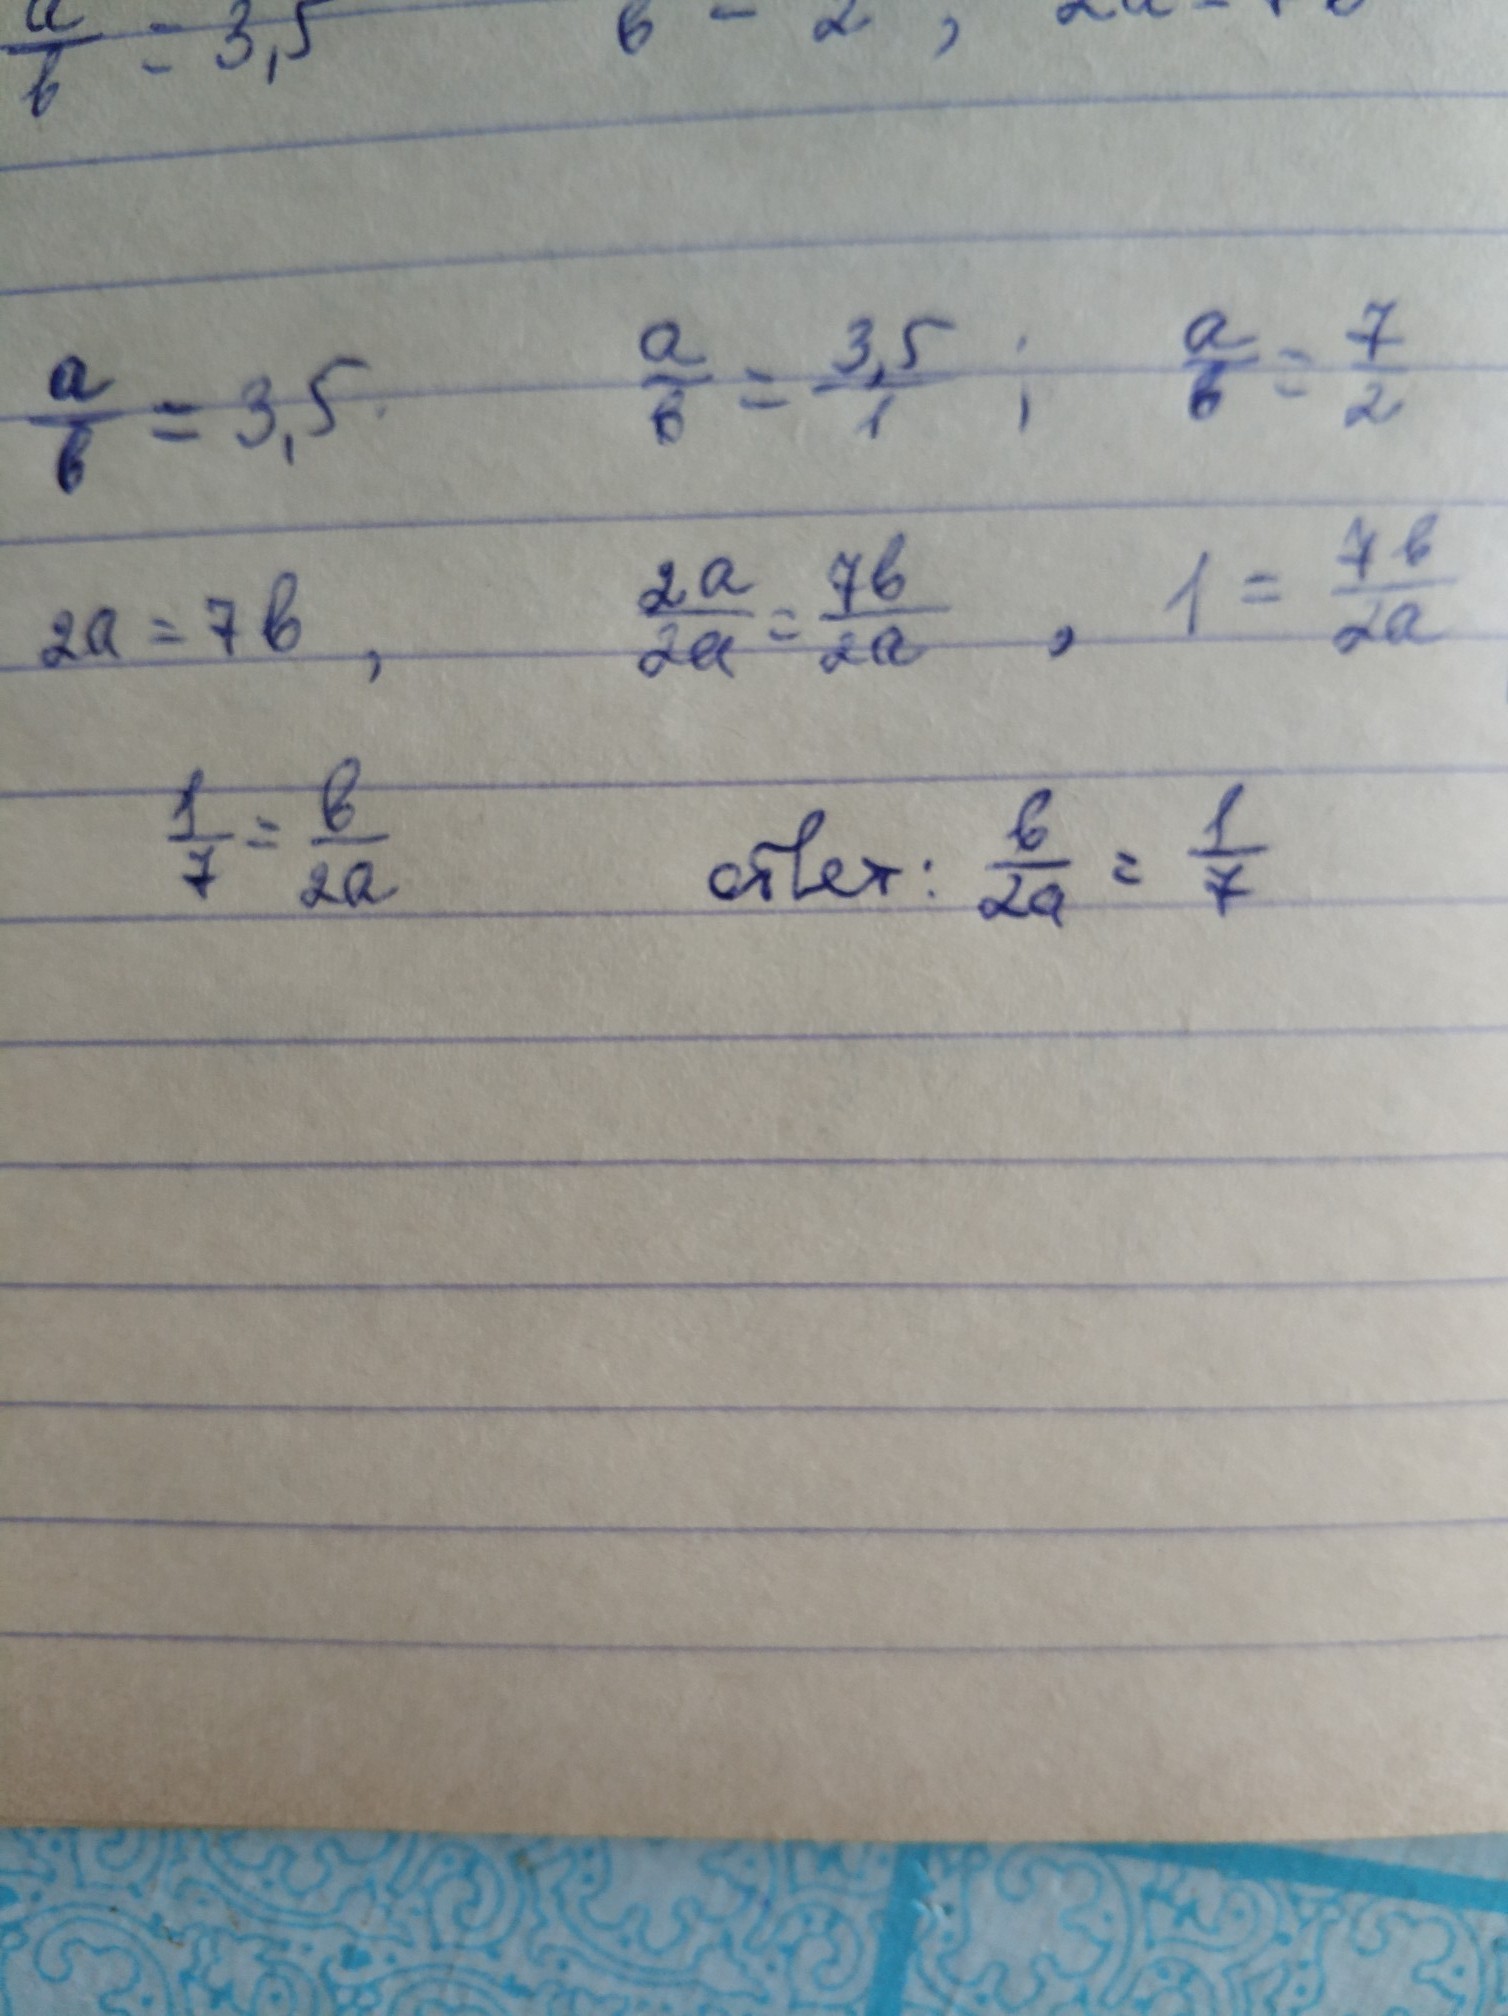 a/b = 3,5 b - 2 , 2a = 7b
a/b = 3,5. a/b = 3,5/1 ; a/b = 7/2
2a = 7b , 2a/2a = 7b/2a , 1 = 7b/2a
1/7 = b/2a ответ: b/2a = 1/7